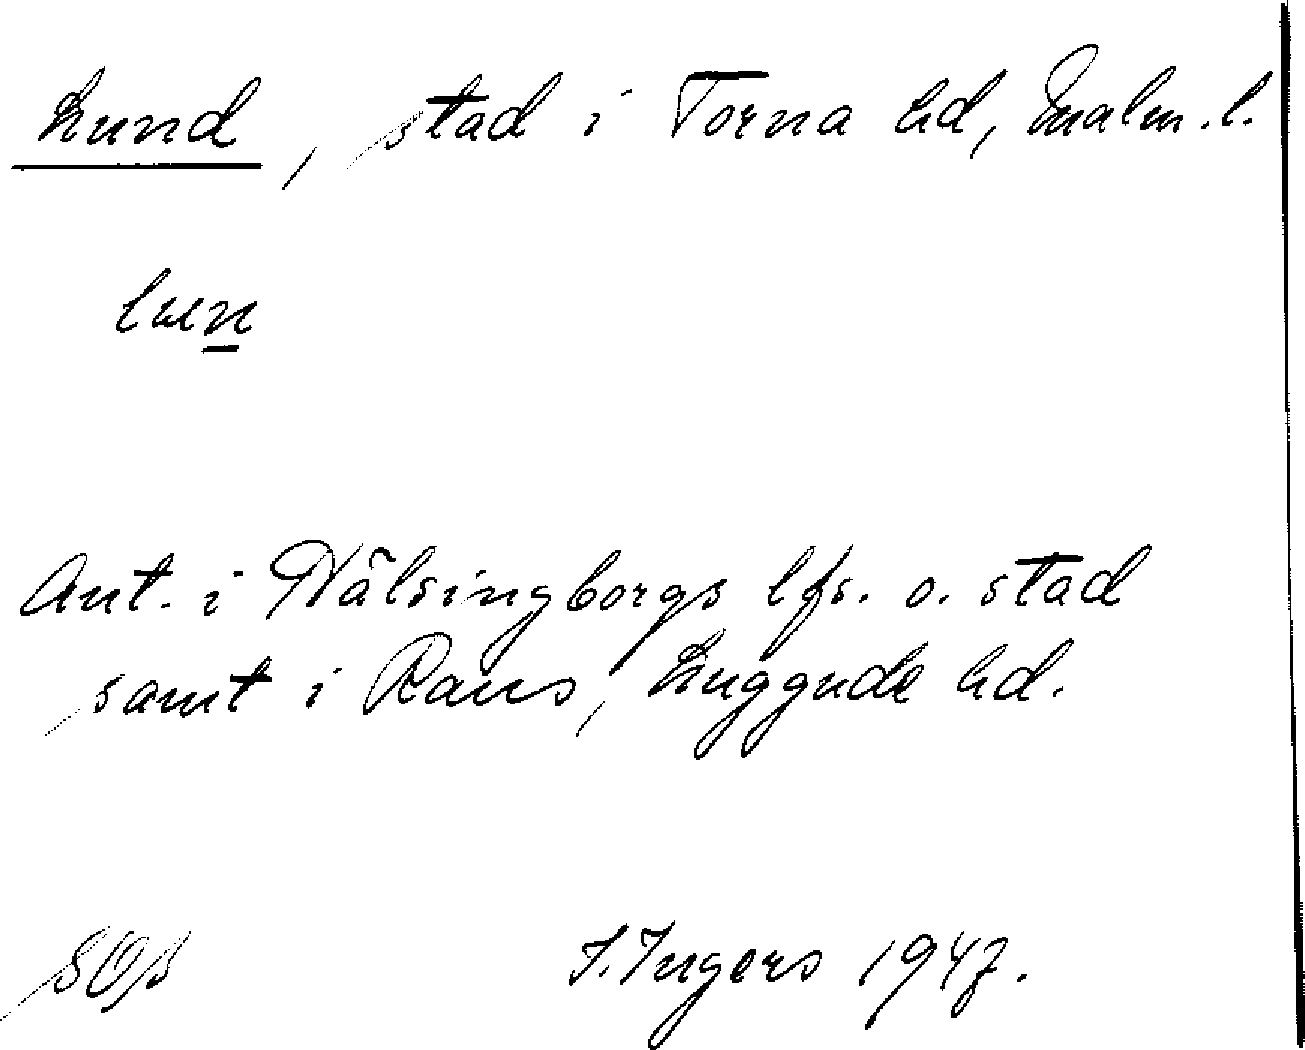 Lund, stad i Torna hd, Malm. l.
lun
Ant. i Hälsingborgs lfs. o. stad
samt i Raus, Luggude hd.
I. Ingers 1947.